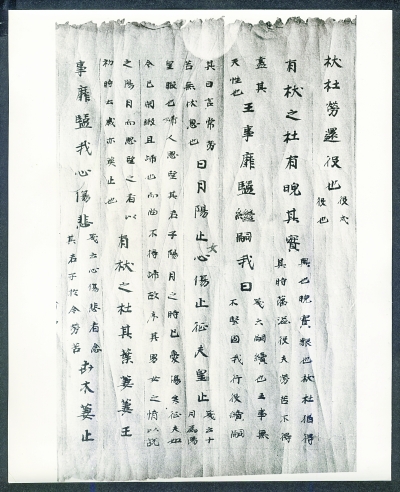 杕杜勞還役也
役戍
役也
有杕之杜有睆其實
興也睆實貌也杕杜猶得
其時蕃滋役夫勞苦不得
盡其
天性也
王事靡盬繼嗣我日
箋云嗣續也王事無
不堅固我行役續嗣
其日言常勞
苦無休息也
日月陽止女心傷止征夫皇止
箋云十
月爲陽
皇暇也婦人思望其君子陽月之時已憂傷矣征夫如
今已閒暇且歸也而尚不得歸故序其男女之情以說
之陽月而思望之者以
初時云歲亦莫止也
有杕之杜其葉萋萋王
事靡盬我心傷悲
箋云心傷悲者念
其君子於今勞苦
卉木萋止